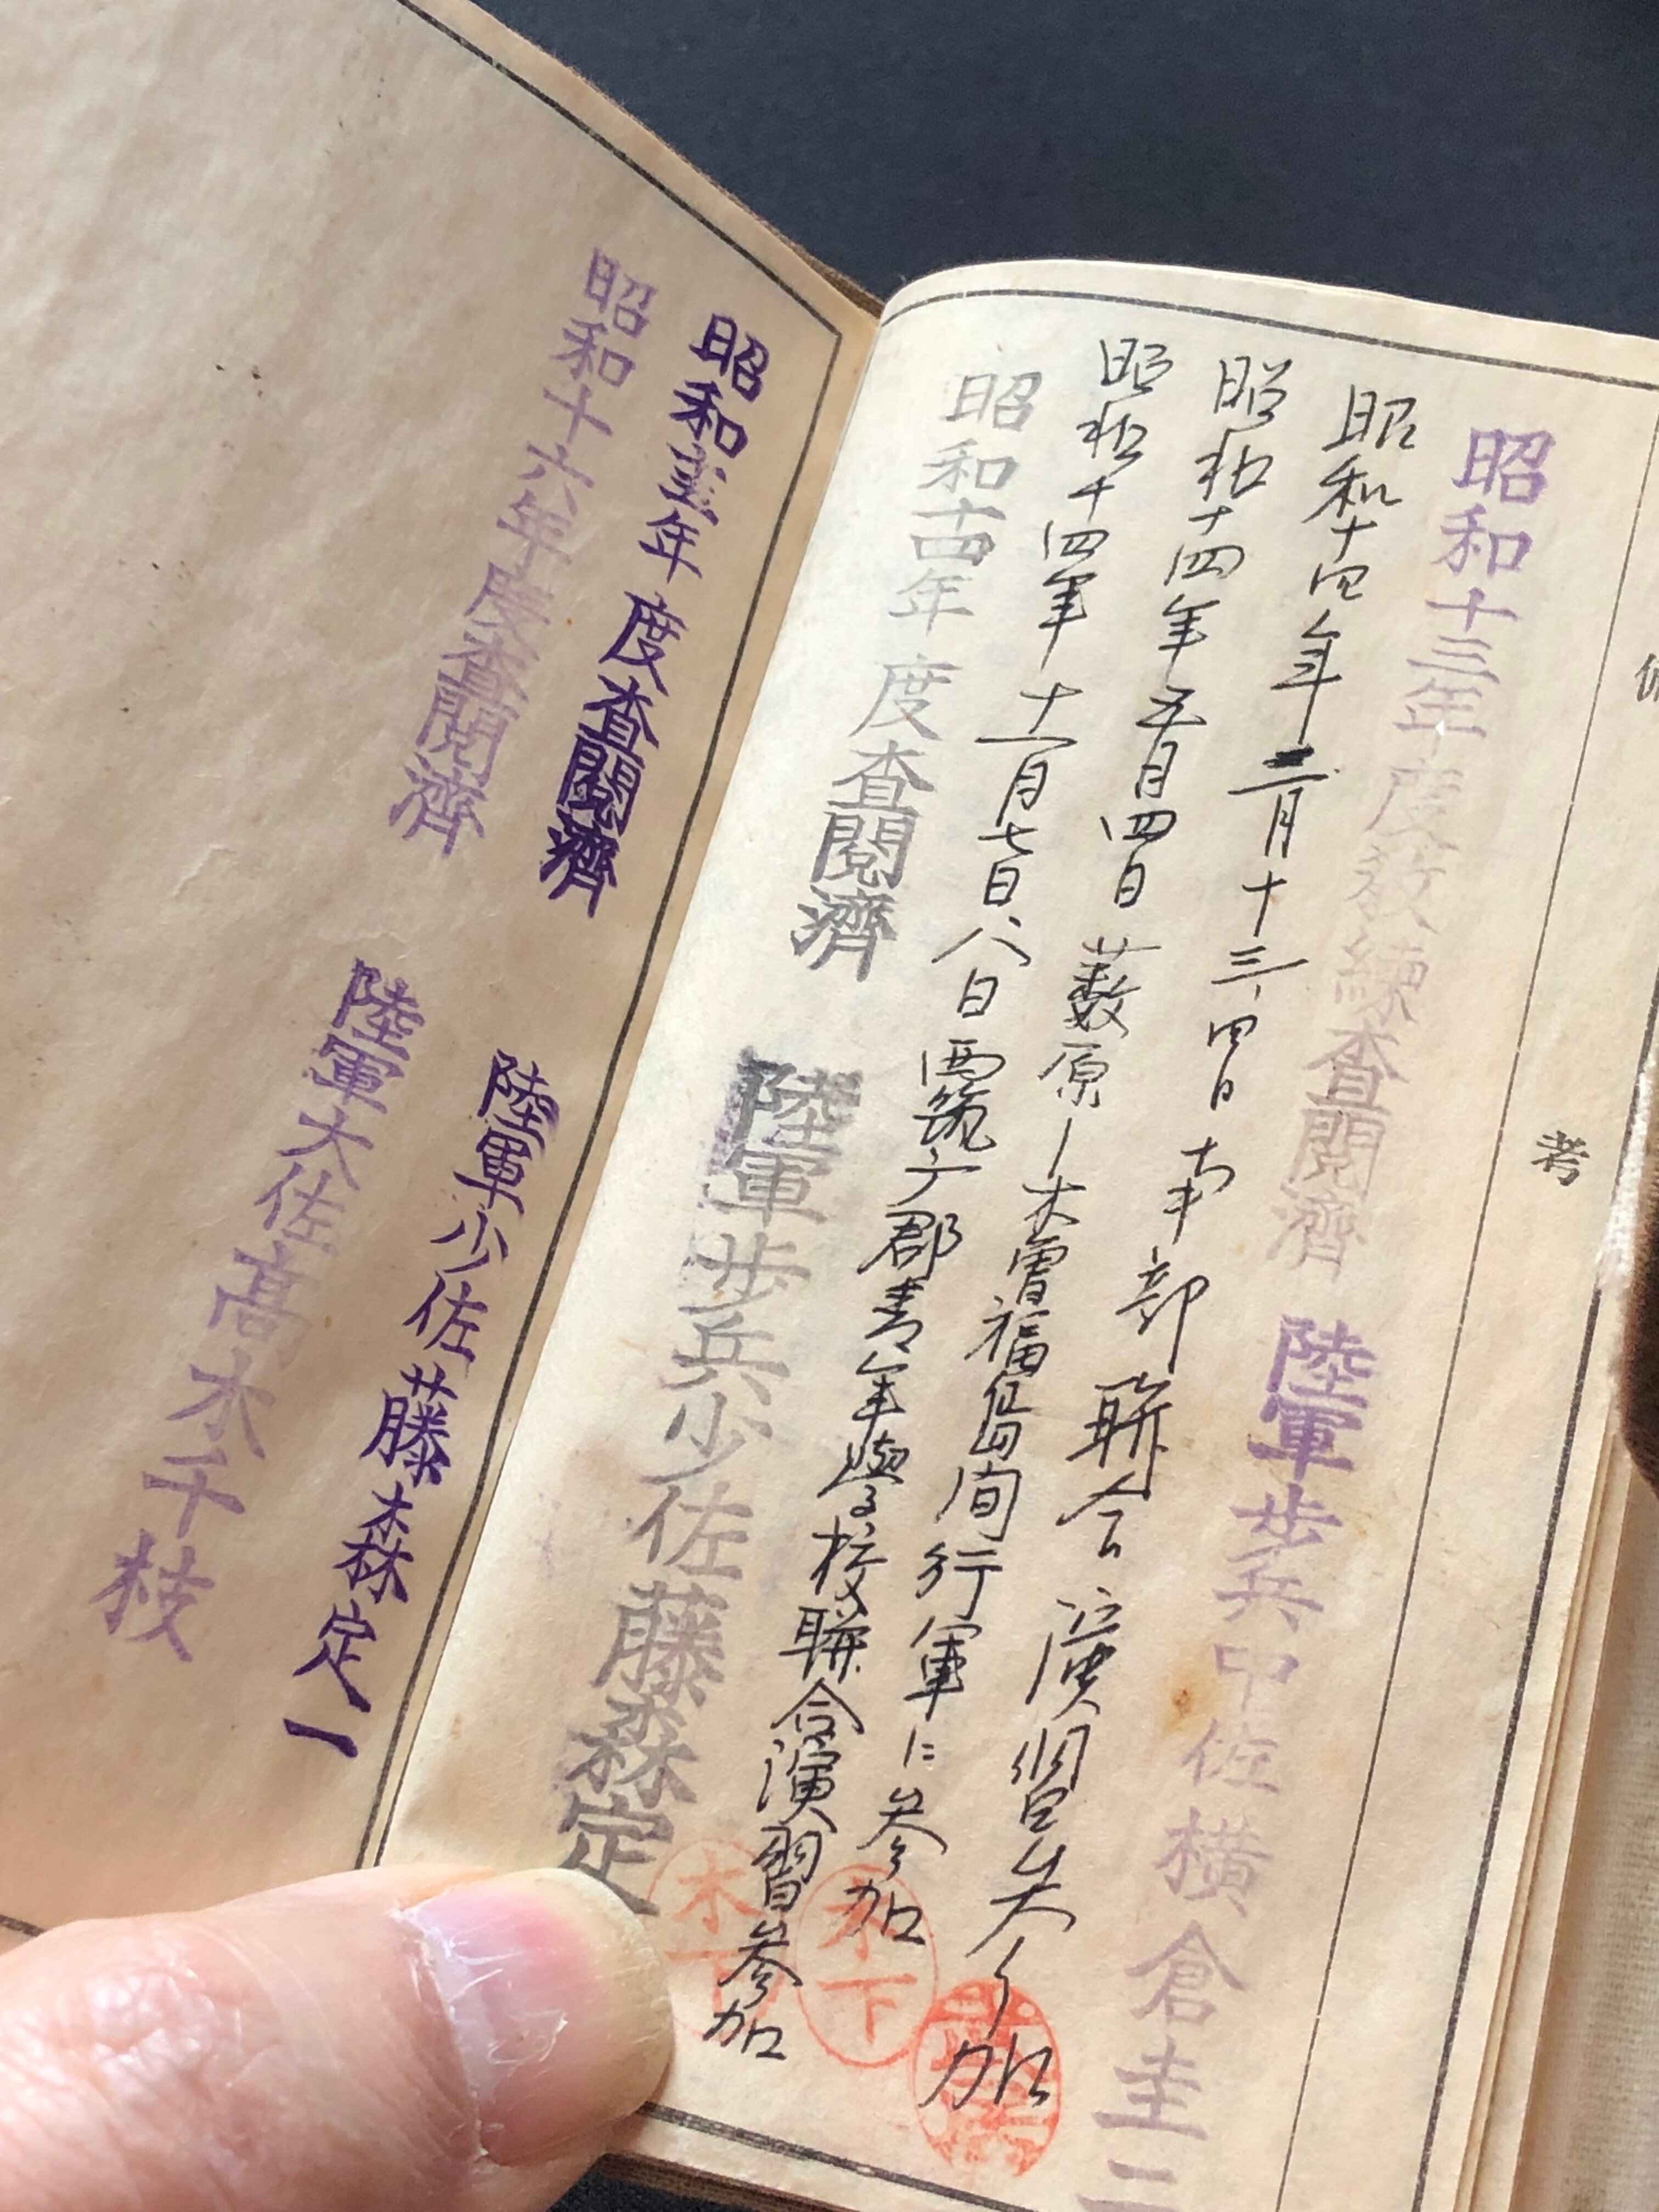 備考
昭和十三年度教練査閲濟 陸軍歩兵中佐横倉圭二
昭和十四年二月十三、四日 南部聯合演習参加
昭和十四年五月四日 薮原ー木曽福島間行軍ニ参加
昭和十四年十一月七日、八日 西筑ヶ郡青年學校聯合演習参加
木下
木下
昭和十四年度査閲濟 陸軍歩兵少佐藤森定
昭和十五年度査閲濟 陸軍少佐藤森定一
昭和十六年度査閲濟 陸軍大佐高木千枝